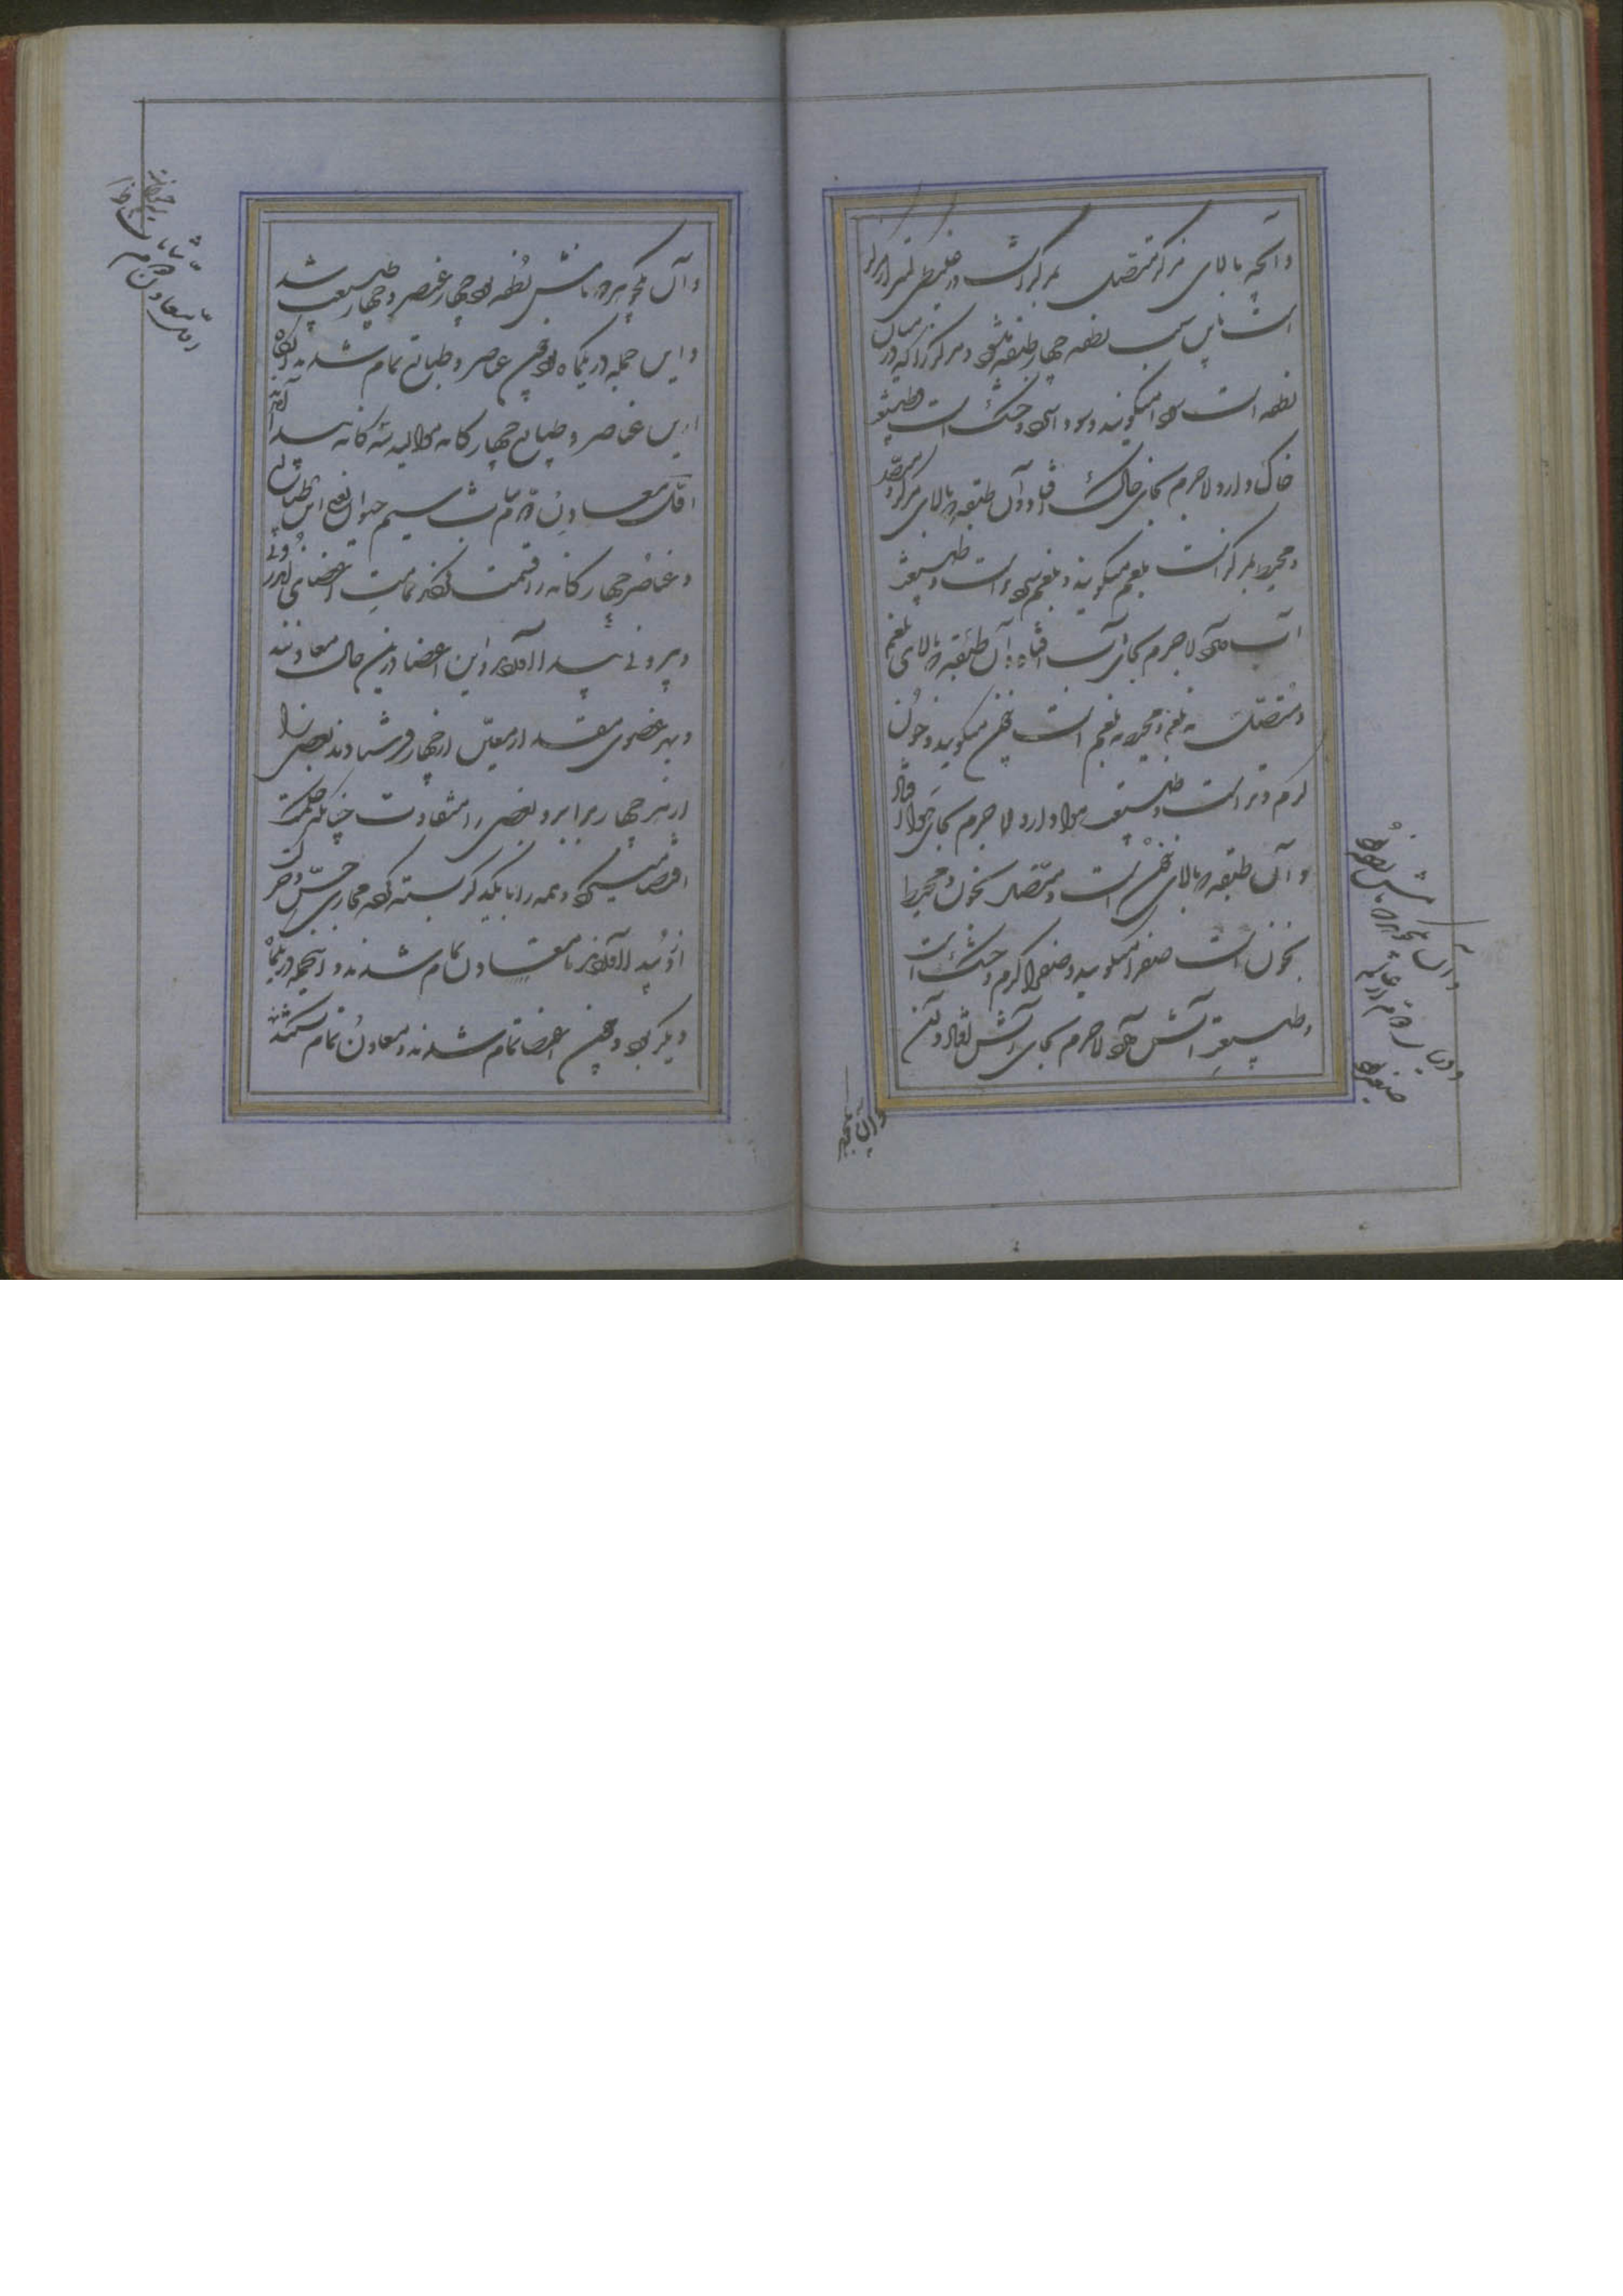 وآنچه بالای مرکز متصل بمرکز است در غلیظی کمتر از مرکز
است باین سبب نطفه چهار طبقه میشود و مرکز را که در میان
نطفه است سودا میگویند و سودا سرد و خشک است و طبیعت
خاک دارد لاجرم بجای خاک افتاد و آن طبقه که بالای مرکز و متصل
و محیط بمرکز است بلغم میگویند و بلغم سرد و تر است و طبیعت
آب دارد لاجرم بجای آب افتاد و آن طبقه که بالای بلغم
و متصل به بلغم و محیط به بلغم است خون میگویند و خون
گرم و تر است و طبیعت هوا دارد لاجرم بجای هوا افتاد
و آن طبقه که بالای خون است و متصل بخون و محیط
بخون است صفرا میگویند و صفرا گرم و خشک است
و طبیعت آتش دارد لاجرم بجای آتش افتاد و آن
وآن یکجوهر
وآن یکجوهر که نامش نطفه بود
صفرا
وآن یکجوهر که نامش نطفه بود چهار عنصر و چهار طبیعت شد
و این جمله در یکماه بود چون عناصر و طبایع تمام شدند آنگاه
ازین عناصر و طبایع چهارگانه موالید سه گانه پیدا آمدند
اول معادن دوم نبات سیم حیوان یعنی این طبایع
و عناصر چهارگانه را قسمت کرد تمامت اعضای اندرونی
و بیرونی پیدا آورد و این اعضا درین حال معادنند
و بهر عضوی مقدار معین از چهار فرستادند بعضی را
از هر چهار برابر و بعضی را متفاوت چنانکه حکمت
اقتضا میکرد و همه را با یکدیگر بسته کرد و مجاری حس و حرکت
ازو پیدا آورد تا معادن تمام شدند و اینجمله در یکماه
دیگر بود و چون اعضا تمام شدند و معادن تمام گشتند
اول معادن دوم نبات